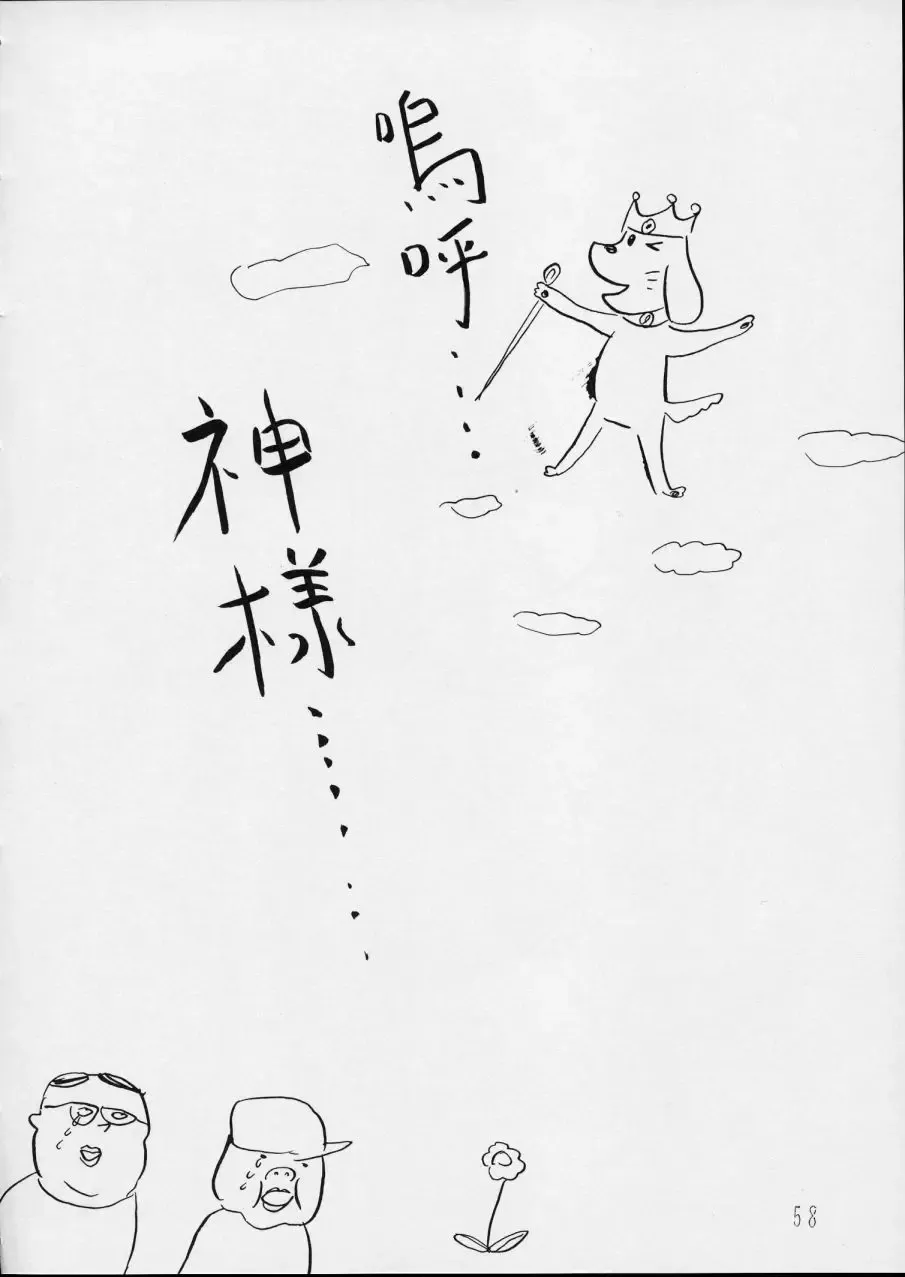 嗚呼…
神様……
58